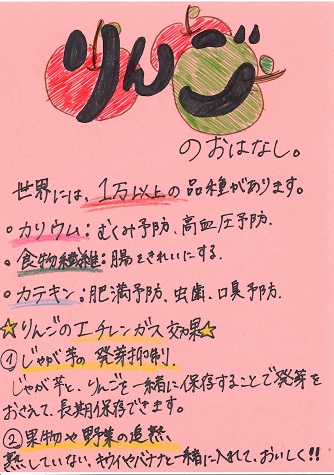 りんご
のおはなし。
世界には、1万以上の品種があります。
・カリウム:むくみ予防、高血圧予防.
・食物繊維:腸をきれいにする.
・カテキン:肥満予防、虫歯、口臭予防.
☆りんごのエチレンガス効果☆
①じゃが芋の発芽抑制
じゃが芋と、りんごを一緒に保存することで発芽を
おさえて、長期保存できます。
②果物や野菜の追熟
熟していない、キウイやバナナと一緒に入れて、おいしく!!